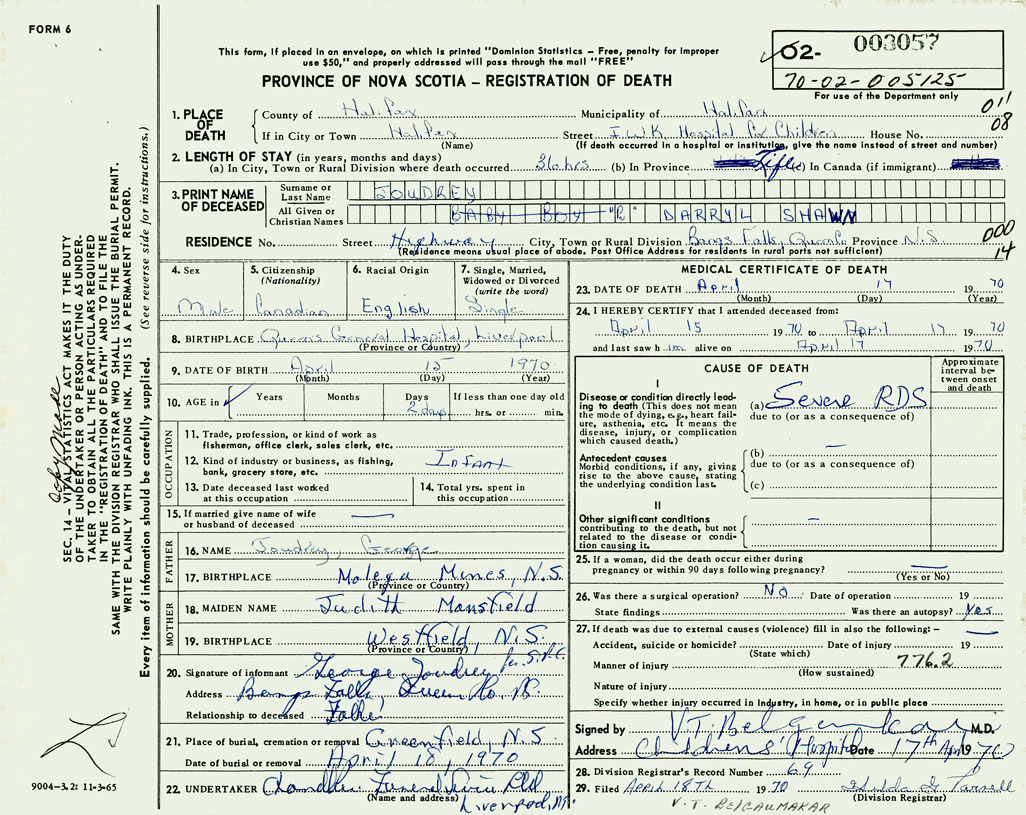 FORM 6
This form, if placed in an envelope, on which is printed "Dominion Statistics – Free, penalty for improper
use $50," and properly addressed will pass through the mail "FREE"
PROVINCE OF NOVA SCOTIA – REGISTRATION OF DEATH
02- 003057
70-02-005125
For use of the Department only
011
08
1. PLACE OF DEATH
County of Halifax Municipality of Halifax
If in City or Town Halifax Street I.W.K. Hospital for Children House No.
(Name) (If death occurred in a hospital or institution, give the name instead of street and number)
2. LENGTH OF STAY (in years, months and days)
(a) In City, Town or Rural Division where death occurred 36 hrs (b) In Province Life (c) In Canada (if immigrant)
3. PRINT NAME OF DECEASED
Surname or Last Name JOUDREY
All Given or Christian Names BABY BOY "B" DARRYL SHAWN
RESIDENCE No. Street Highway City, Town or Rural Division Bangs Falls, Queen Co Province N.S.
(Residence means usual place of abode. Post Office Address for residents in rural parts not sufficient)
000
14
4. Sex Male
5. Citizenship (Nationality) Canadian
6. Racial Origin English
7. Single, Married, Widowed or Divorced (write the word) Single
8. BIRTHPLACE Queens General Hospital, Liverpool
(Province or Country)
9. DATE OF BIRTH April 15 1970
(Month) (Day) (Year)
10. AGE in Years Months Days 2 days If less than one day old hrs. or min.
OCCUPATION
11. Trade, profession, or kind of work as fisherman, office clerk, sales clerk, etc.
12. Kind of industry or business, as fishing, bank, grocery store, etc. Infant
13. Date deceased last worked at this occupation
14. Total yrs. spent in this occupation
15. If married give name of wife or husband of deceased —
FATHER
16. NAME Joudrey, George
17. BIRTHPLACE Molega Mines, N.S.
(Province or Country)
MOTHER
18. MAIDEN NAME Judith Mansfield
19. BIRTHPLACE Westfield, N.S.
(Province or Country)
20. Signature of informant George Joudrey
Address Bangs Falls, Queen Co, N.S.
Relationship to deceased
21. Place of burial, cremation or removal Greenfield, N.S.
Date of burial or removal April 18, 1970
22. UNDERTAKER Funeral Ltd
(Name and address) Liverpool, N.S.
MEDICAL CERTIFICATE OF DEATH
23. DATE OF DEATH April 17 1970
(Month) (Day) (Year)
24. I HEREBY CERTIFY that I attended deceased from:
April 15 1970 to April 17 1970
and last saw him alive on April 17 1970
CAUSE OF DEATH
Approximate interval between onset and death
I
Disease or condition directly leading to death (This does not mean the mode of dying, e.g., heart failure, asthenia, etc. It means the disease, injury, or complication which caused death.)
(a) Severe RDS
due to (or as a consequence of)
—
Antecedent causes
Morbid conditions, if any, giving rise to the above cause, stating the underlying condition last.
(b)
due to (or as a consequence of)
(c)
II
Other significant conditions contributing to the death, but not related to the disease or condition causing it. —
25. If a woman, did the death occur either during pregnancy or within 90 days following pregnancy? —
(Yes or No)
26. Was there a surgical operation? No Date of operation 19
State findings Was there an autopsy? Yes
27. If death was due to external causes (violence) fill in also the following: – —
Accident, suicide or homicide? Date of injury 19
(State which)
Manner of injury 776.2
(How sustained)
Nature of injury
Specify whether injury occurred in industry, in home, or in public place
Signed by V.T. Belgaumkar M.D.
Address Childrens' Hospital Date 17th April 1970
28. Division Registrar's Record Number 69
29. Filed APRIL 18TH 1970
(Division Registrar)
V.T. BELGAUMAKAR
SEC. 14 – VITAL STATISTICS ACT MAKES IT THE DUTY
OF THE UNDERTAKER OR PERSON ACTING AS UNDER-
TAKER TO OBTAIN ALL THE PARTICULARS REQUIRED
IN THE "REGISTRATION OF DEATH" AND TO FILE THE
SAME WITH THE DIVISION REGISTRAR WHO SHALL ISSUE THE BURIAL PERMIT.
WRITE PLAINLY WITH UNFADING INK. THIS IS A PERMANENT RECORD.
Every item of information should be carefully supplied. (See reverse side for instructions.)
9004-3.2: 11-3-65